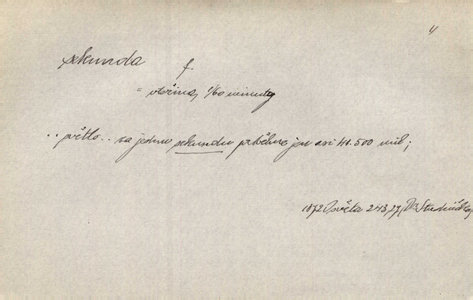 4
sekunda
f.
= vteřina, 1/60 minuty
.. světlo .. za jednu sekundu proběhne jen asi 41.500 mil;
1872 Osvěta 243, (Dr. Studnička)